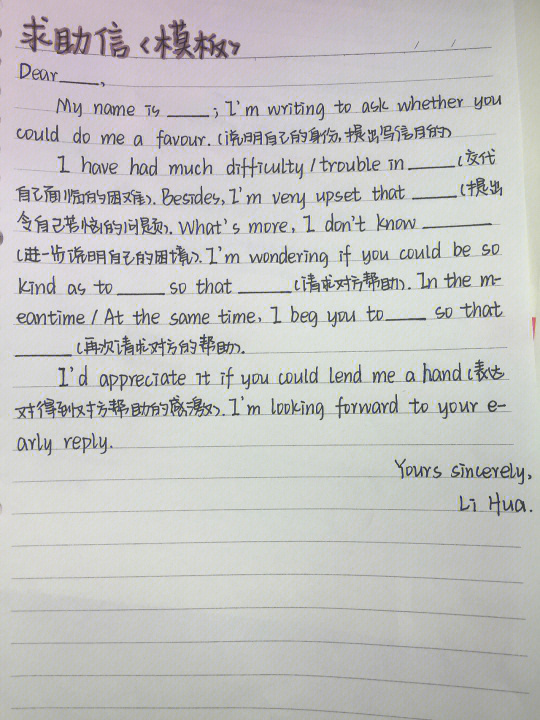 求助信《模板》
Dear____,
My name is ____; I'm writing to ask whether you
could do me a favour. (说明自己的身份,提出写信目的)
I have had much difficulty/trouble in ____ (交代
自己面临的困难). Besides, I'm very upset that ____ (提出
令自己苦恼的问题). What's more, I don't know ____
(进一步说明自己的困境). I'm wondering if you could be so
kind as to ____ so that ____ (请求对方帮助). In the m-
eantime / At the same time, I beg you to ____ so that
____ (再次请求对方的帮助).
I'd appreciate it if you could lend me a hand (表达
对得到对方帮助的感激). I'm looking forward to your e-
arly reply.
Yours sincerely,
Li Hua.